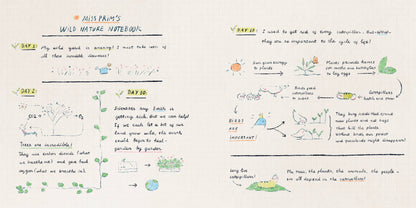 MISS PRIM'S
WILD NATURE NOTEBOOK
DAY 1:
My wild yard is amazing! I must take care of
all these incredible
DAY 2:
Trees are incredible!
They use carbon dioxide (what
we breathe out) and give back
oxygen (what we breathe in).
DAY 10:
Scientists say Earth is
getting sick. But we can help!
If we each let a bit of our
land grow wild, the earth
could begin to heal
garden by garden.
DAY 15:
I used to get rid of every caterpillar. But
they are so important to the cycle of life!
Sun gives energy
to plants
Plants provide homes
for moths and butterflies
to lay eggs
Caterpillars
hatch and
Birds feed
caterpillars
to
BIRDS
ARE
IMPORTANT!
They bring seeds that spread
new plants and eat bugs
that kill the plants.
Without birds, our forest
and grasslands might disappear!
Long live
caterpillars!
The trees, the plants, the animals, the people—
we all depend on the caterpillars!